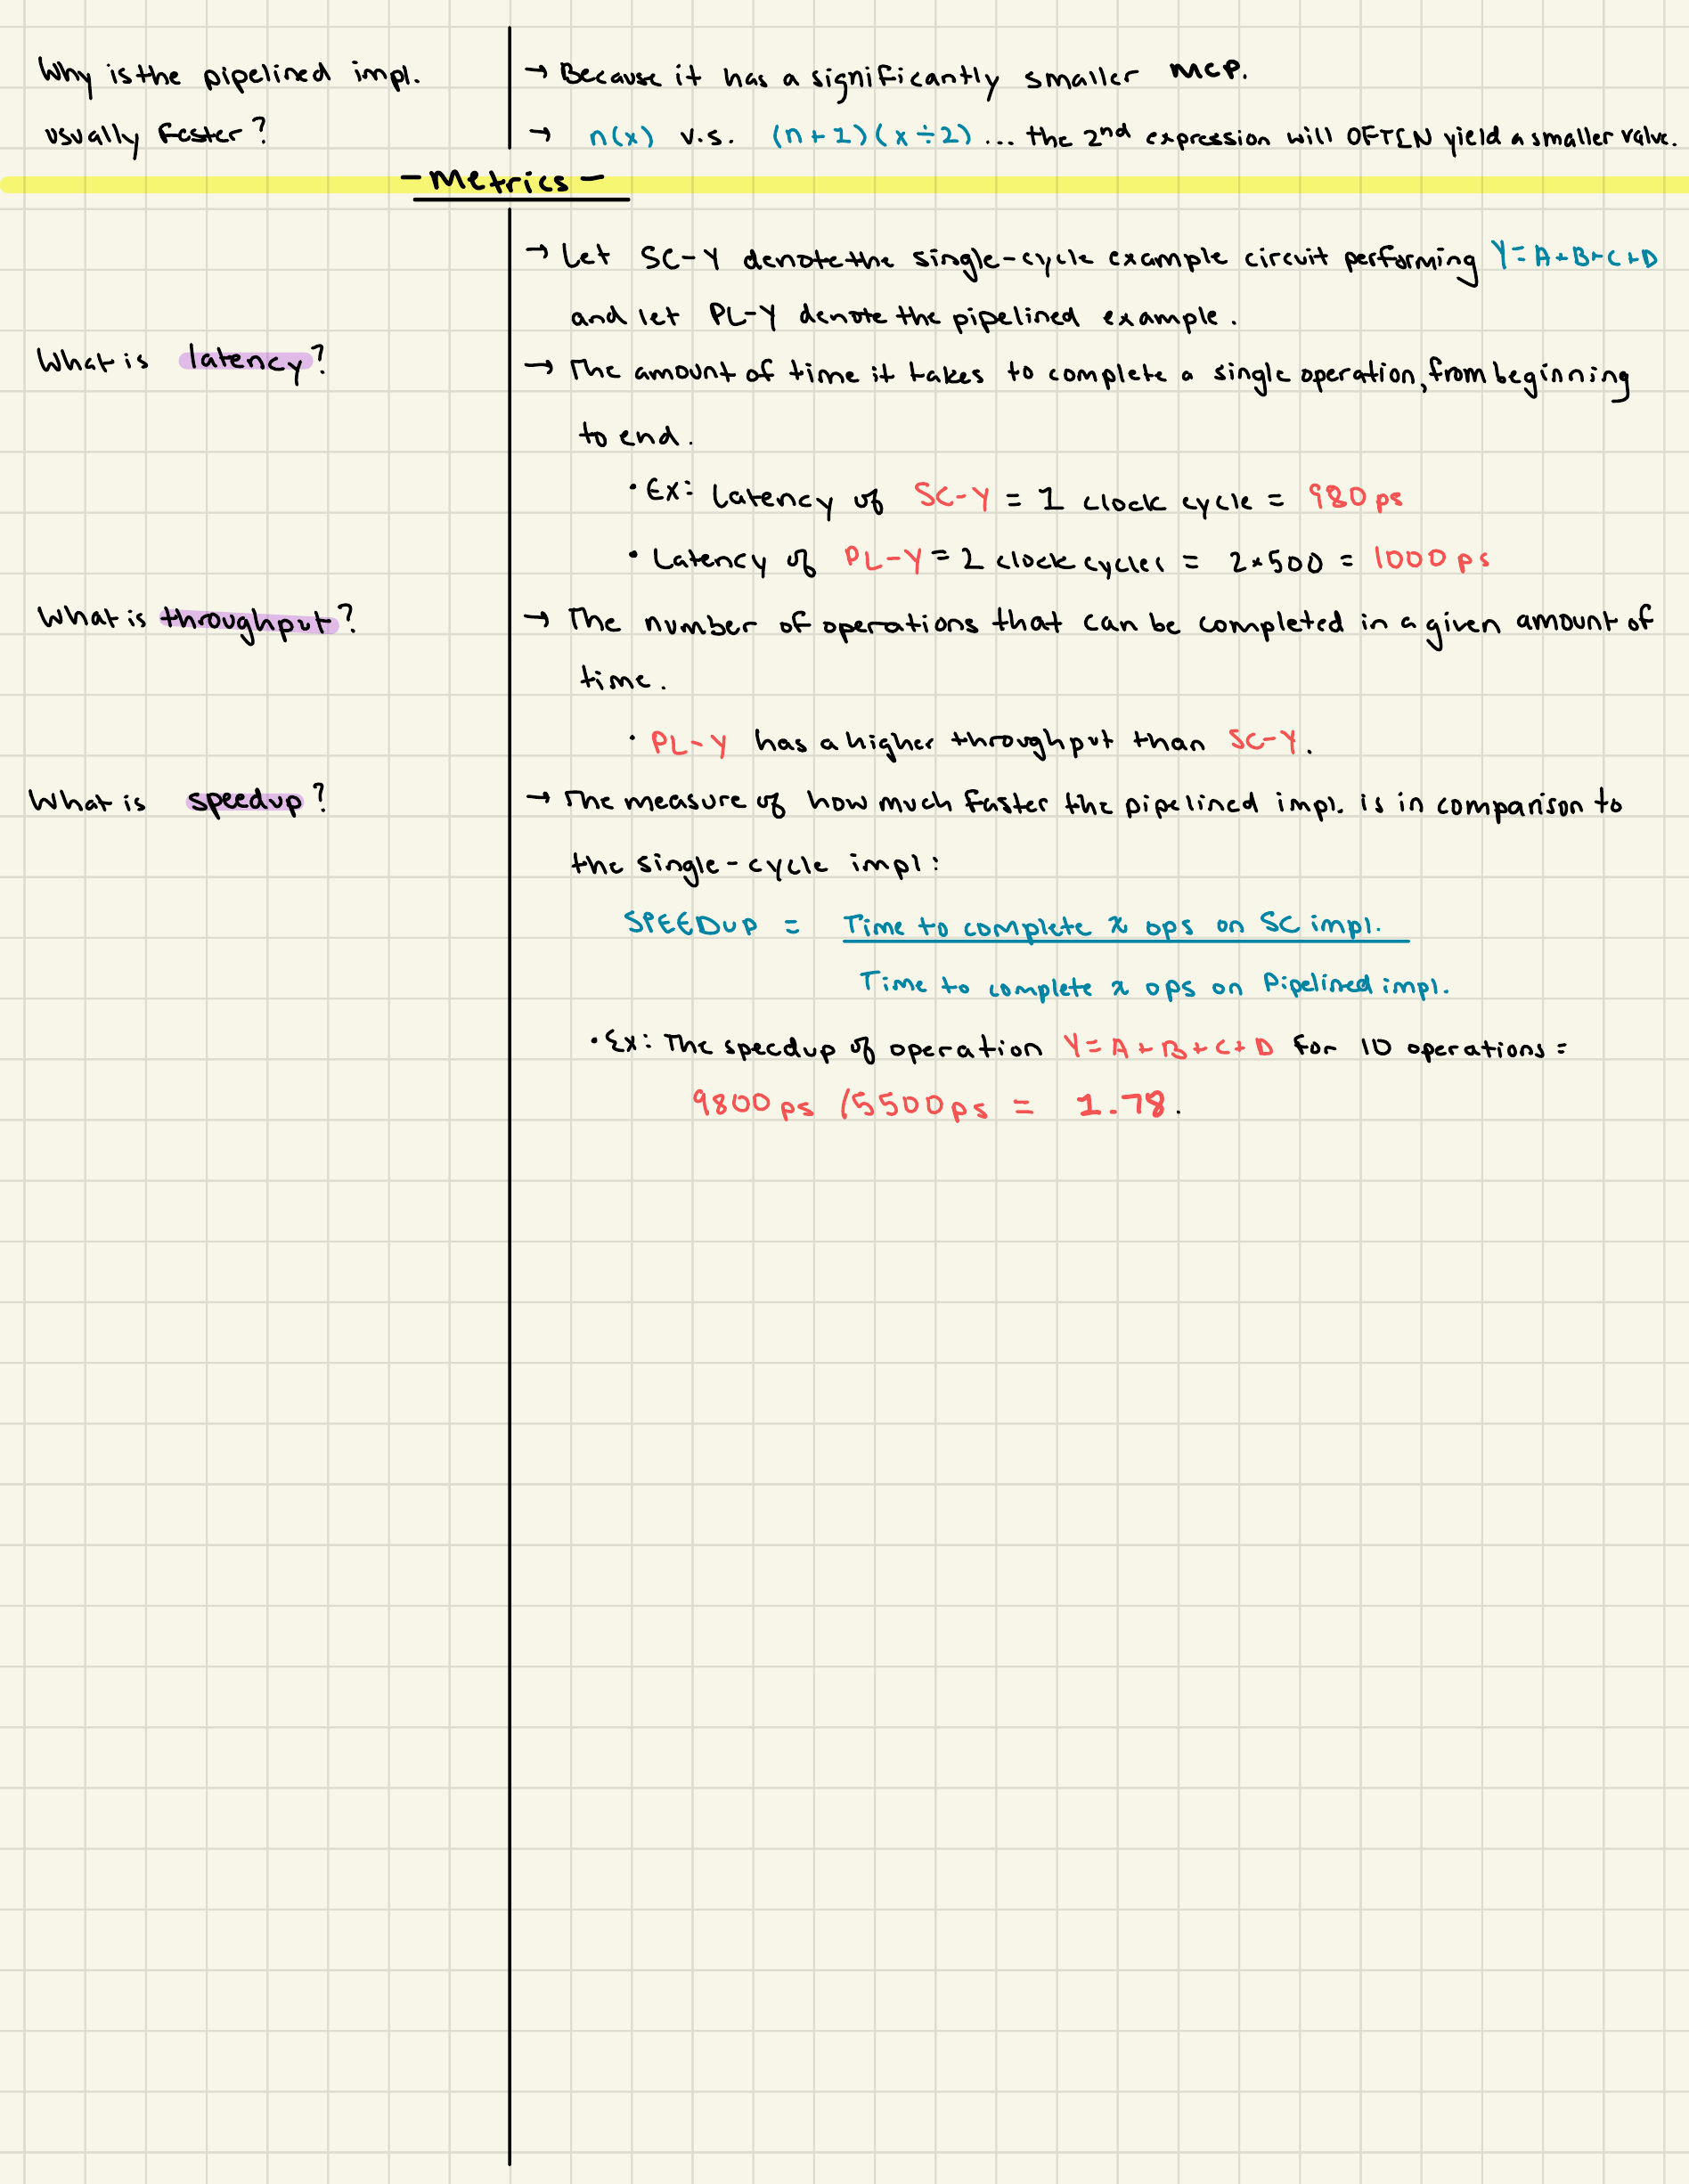 Why is the pipelined impl.
usually faster?
→ Because it has a significantly smaller MCP.
→ n(x) v.s. (n+1)(x÷2) ... the 2nd expression will OFTEN yield a smaller value.
- Metrics -
→ Let SC-Y denote the single-cycle example circuit performing Y=A+B+C+D
and let PL-Y denote the pipelined example.
What is latency?
→ The amount of time it takes to complete a single operation, from beginning
to end.
• Ex: Latency of SC-Y = 1 clock cycle = 980 ps
• Latency of PL-Y = 2 clock cycles = 2*500 = 1000 ps
What is throughput?
→ The number of operations that can be completed in a given amount of
time.
• PL-Y has a higher throughput than SC-Y.
What is speedup?
→ The measure of how much faster the pipelined impl. is in comparison to
the single-cycle impl:
SPEEDUP = Time to complete x ops on SC impl.
Time to complete x ops on Pipelined impl.
• Ex: The speedup of operation Y=A+B+C+D for 10 operations =
9800 ps /5500 ps = 1.78.